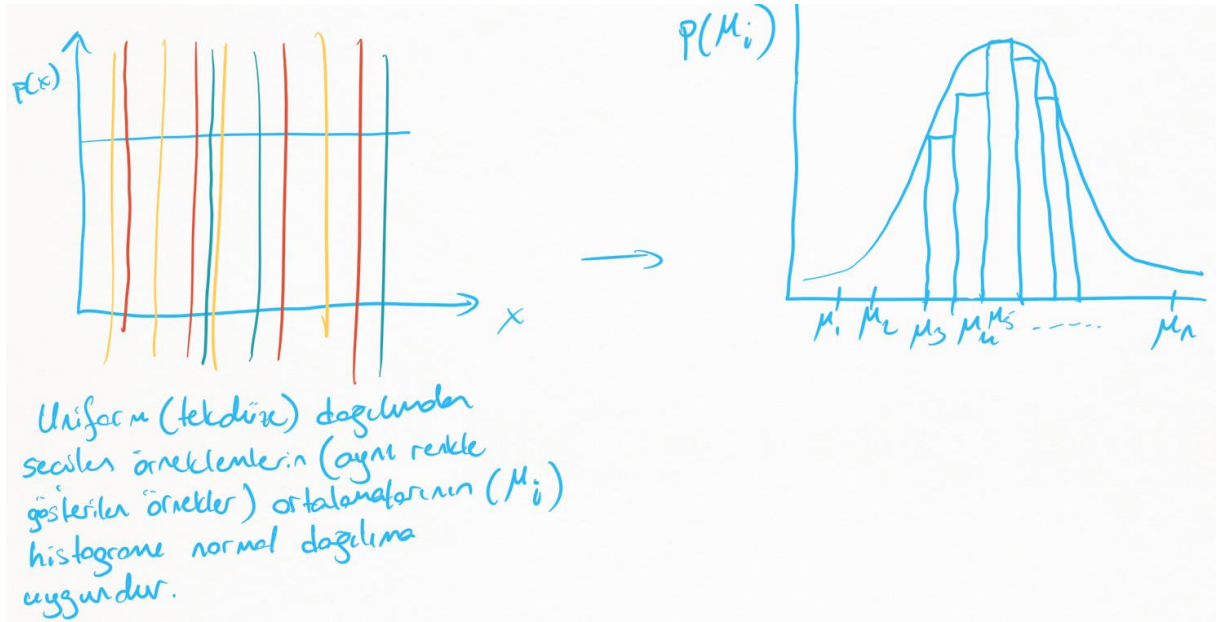 p(x)
x
Uniform (tekdüze) dağılımdan
seçilen örneklemlerin (aynı renkle
gösterilen örnekler) ortalamalarının (μi)
histogramı normal dağılıma
uygundur.
p(μi)
μ1 μ2 μ3 μ4 μ5 ------ μn